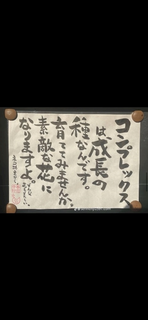 コンプレックス
は、成長の
種なんです。
育ててみませんか、
素敵な花に
なりますよ。